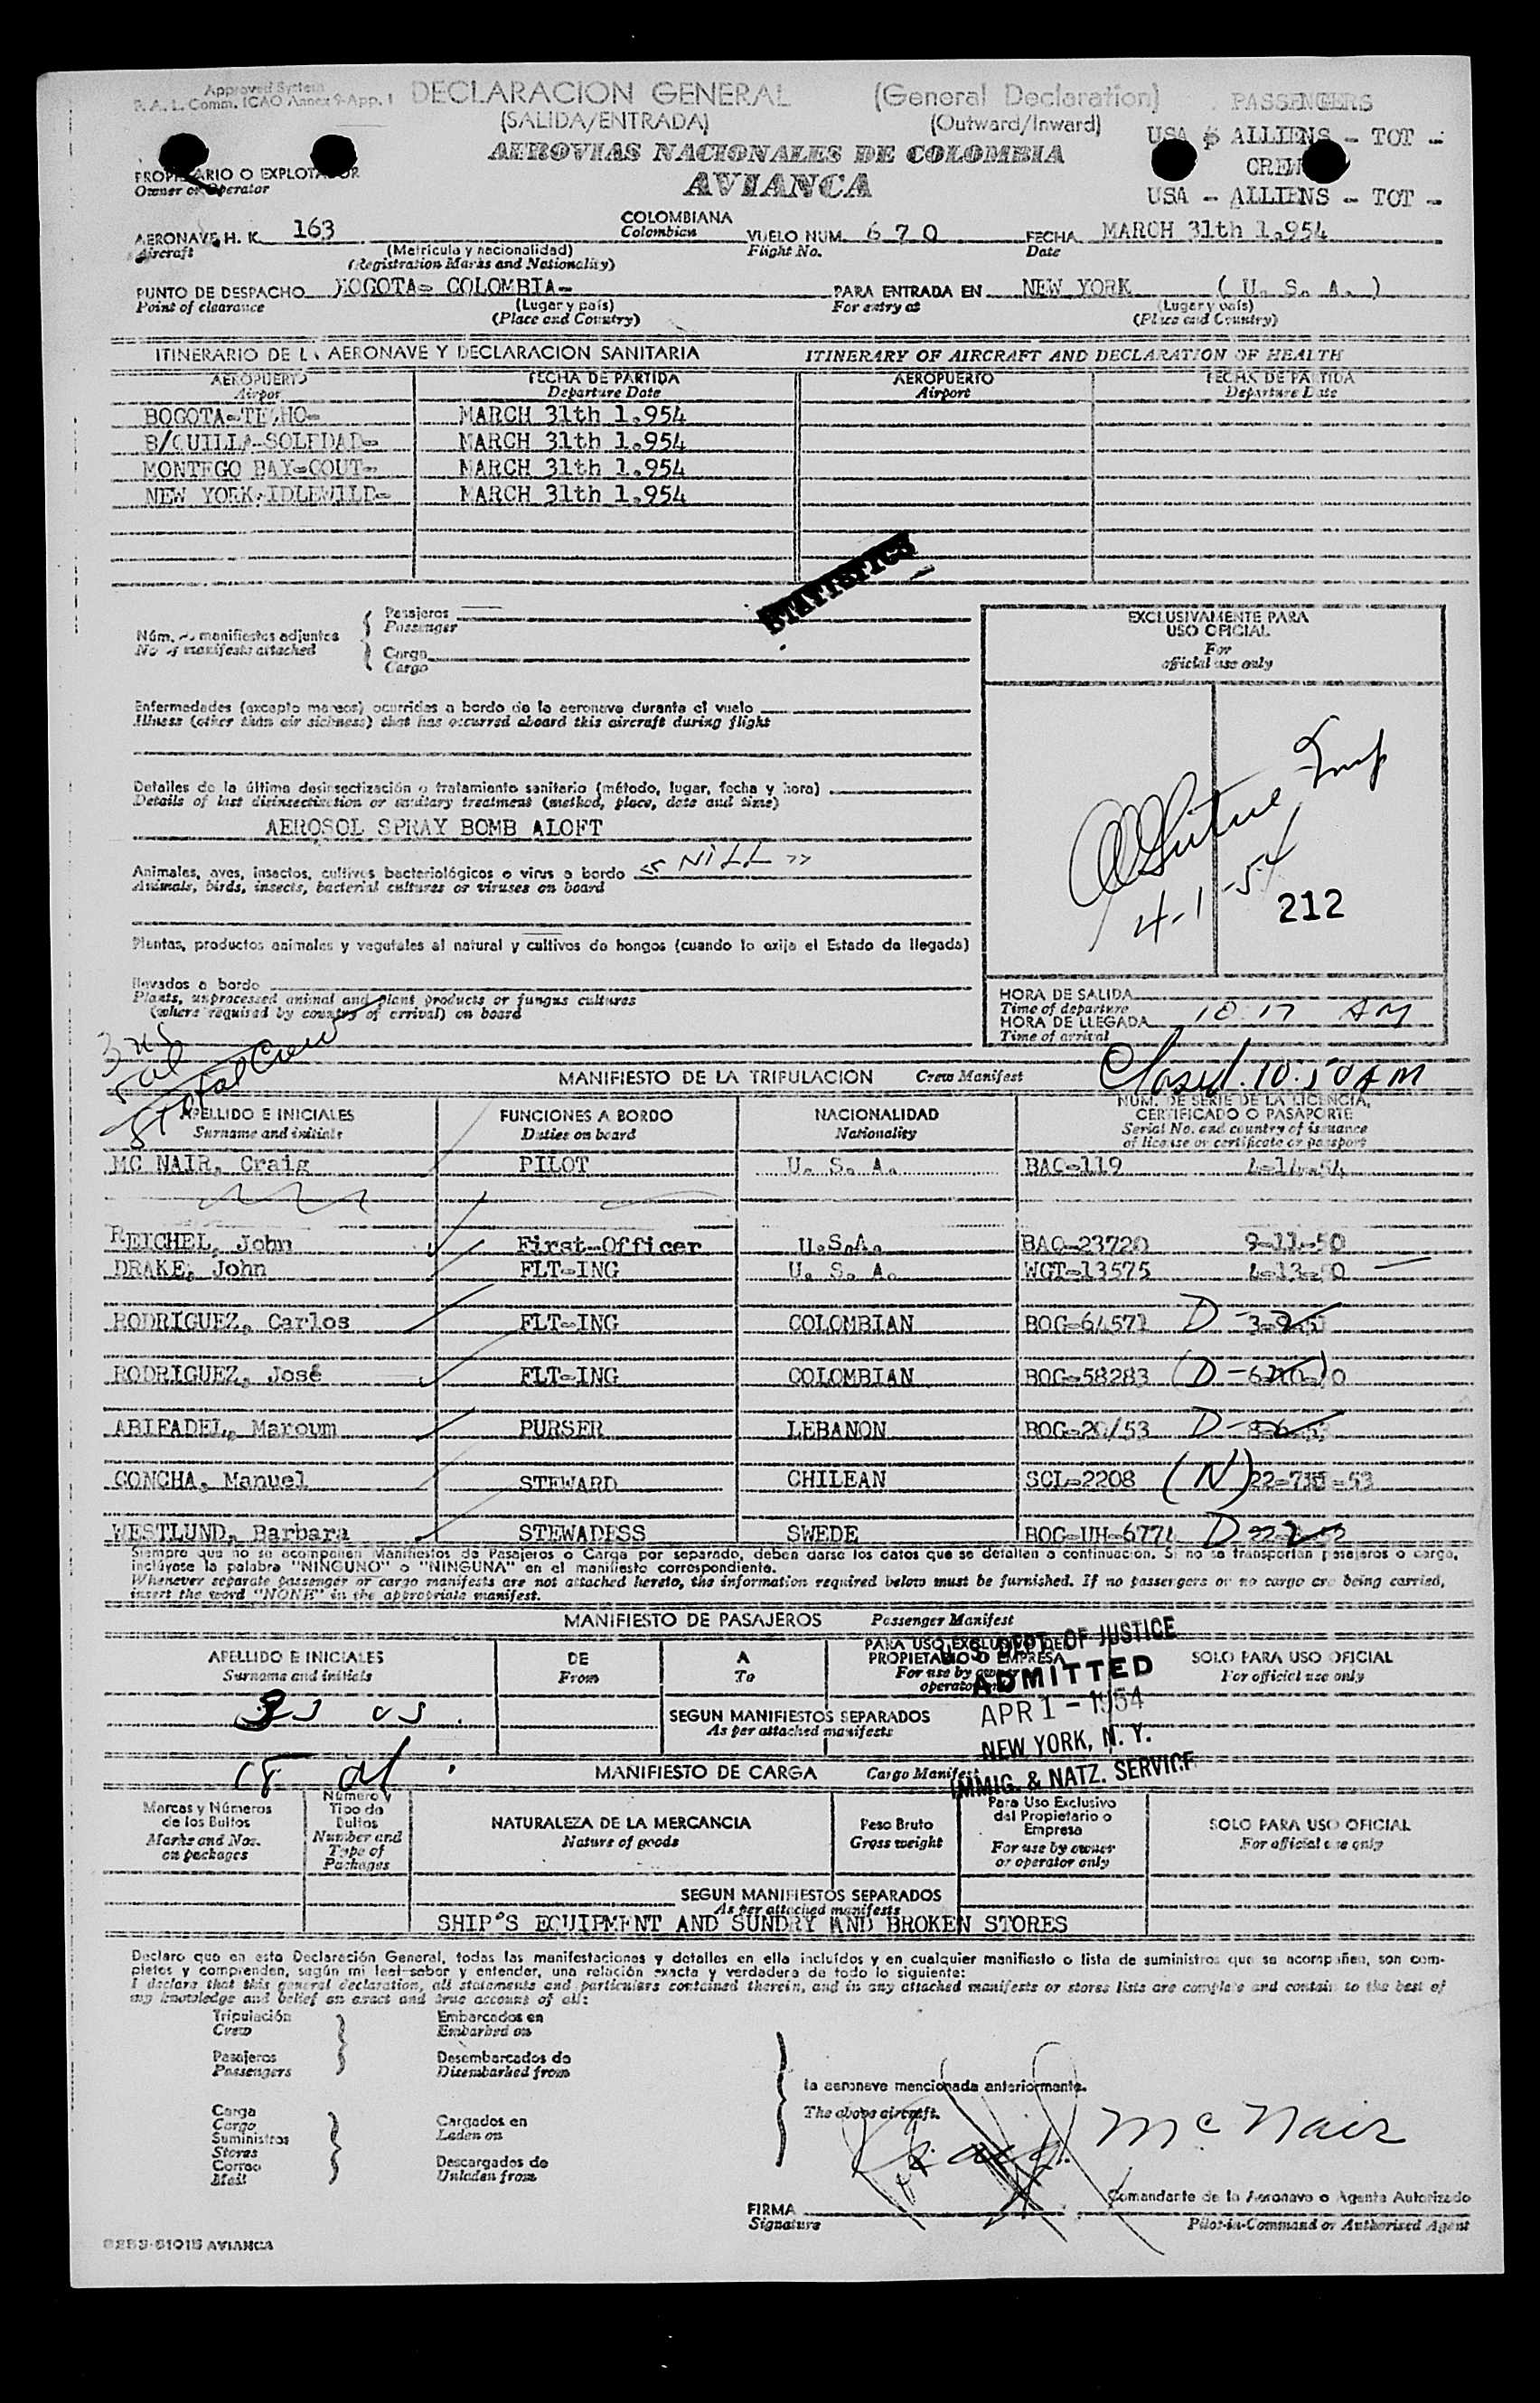 Approved System
F. A. L. Comm. ICAO Annex 9-App. 1
DECLARACION GENERAL (General Declaration)
(SALIDA/ENTRADA) (Outward/Inward)
PASSENGERS
USA $ ALLIENS - TOT -
CREW
USA - ALLIENS - TOT -
AEROVIAS NACIONALES DE COLOMBIA
AVIANCA
PROPIETARIO O EXPLOTADOR
Owner or Operator
AERONAVE H. K. 163 COLOMBIANA VUELO NUM. 6 7 0 FECHA MARCH 31th 1.954
Aircraft (Matrícula y nacionalidad) Colombian Flight No. Date
(Registration Marks and Nationality)
PUNTO DE DESPACHO BOGOTA- COLOMBIA- PARA ENTRADA EN NEW YORK ( U. S. A. )
Point of clearance (Lugar y país) For entry at (Lugar y país)
(Place and Country) (Place and Country)
ITINERARIO DE LA AERONAVE Y DECLARACION SANITARIA ITINERARY OF AIRCRAFT AND DECLARATION OF HEALTH
AEROPUERTO FECHA DE PARTIDA AEROPUERTO FECHA DE PARTIDA
Airport Departure Date Airport Departure Date
BOGOTA-TECHO- MARCH 31th 1.954
B/QUILLA-SOLEDAD- MARCH 31th 1.954
MONTEGO BAY-COUT- MARCH 31th 1.954
NEW YORK-IDLEWILD- MARCH 31th 1.954
STATISTICS
Núm. de manifiestos adjuntos
No of manifests attached
Pasajeros
Passenger
Carga
Cargo
EXCLUSIVAMENTE PARA
USO OFICIAL
For
official use only
Enfermedades (excepto mareos) ocurridas a bordo de la aeronave durante el vuelo
Illness (other than air sickness) that has occurred aboard this aircraft during flight
Detalles de la última desinsectización o tratamiento sanitario (método, lugar, fecha y hora)
Details of last disinsectization or sanitary treatment (method, place, date and time)
AEROSOL SPRAY BOMB ALOFT
Animales, aves, insectos, cultivos bacteriológicos o virus a bordo << NILL >>
Animals, birds, insects, bacterial cultures or viruses on board
4-1-54
212
Plantas, productos animales y vegetales al natural y cultivos de hongos (cuando lo exija el Estado de llegada)
llevados a bordo
Plants, unprocessed animal and plant products or fungus cultures
(where required by country of arrival) on board
HORA DE SALIDA
Time of departure 10:17 AM
HORA DE LLEGADA
Time of arrival
Closed. 10:50 AM
3 US
5 al
8 Total Crew
MANIFIESTO DE LA TRIPULACION Crew Manifest
APELLIDO E INICIALES FUNCIONES A BORDO NACIONALIDAD NUM. DE SERIE DE LA LICENCIA, CERTIFICADO O PASAPORTE
Surname and initials Duties on board Nationality Serial No. and country of issuance of license or certificate or passport
MC NAIR, Craig PILOT U. S. A. BAC-119 4-14-54
REICHEL, John First-Officer U.S.A. BAC-23720 9-11-50
DRAKE, John FLT-ING U. S. A. WGT-13575 4-13-50
RODRIGUEZ, Carlos FLT-ING COLOMBIAN BOG-64571 D
RODRIGUEZ, José FLT-ING COLOMBIAN BOG-58283 (D
ABIFADEL, Maroum PURSER LEBANON BOG-20/53 D
CONCHA, Manuel STEWARD CHILEAN SCL-2208 (N)
WESTLUND, Barbara STEWADESS SWEDE BOG-UH-6771 D
Siempre que no se acompañen Manifiestos de Pasajeros o Carga por separado, deben darse los datos que se detallan a continuación. Si no se transportan pasajeros o carga,
inclúyase la palabra "NINGUNO" o "NINGUNA" en el manifiesto correspondiente.
Whenever separate passenger or cargo manifests are not attached hereto, the information required below must be furnished. If no passengers or no cargo are being carried,
insert the word "NONE" in the appropriate manifest.
MANIFIESTO DE PASAJEROS Passenger Manifest
APELLIDO E INICIALES DE A PARA USO EXCLUSIVO DEL PROPIETARIO O EMPRESA SOLO PARA USO OFICIAL
Surname and initials From To For use by owner or operator only For official use only
U. S. DEPT. OF JUSTICE
ADMITTED
APR 1 - 1954
NEW YORK, N. Y.
IMMIG. & NATZ. SERVICE
SEGUN MANIFIESTOS SEPARADOS
As per attached manifests
18 al
MANIFIESTO DE CARGA Cargo Manifest
Marcas y Números de los Bultos
Marks and Nos. on packages
Número y Tipo de Bultos
Number and Type of Packages
NATURALEZA DE LA MERCANCIA
Nature of goods
Peso Bruto
Gross weight
Para Uso Exclusivo del Propietario o Empresa
For use by owner or operator only
SOLO PARA USO OFICIAL
For official use only
SEGUN MANIFIESTOS SEPARADOS
As per attached manifests
SHIP'S EQUIPMENT AND SUNDRY AND BROKEN STORES
Declaro que en esta Declaración General, todas las manifestaciones y detalles en ella incluídos y en cualquier manifiesto o lista de suministros que se acompañen, son com-
pletos y comprenden, según mi leal saber y entender, una relación exacta y verdadera de todo lo siguiente:
I declare that this general declaration, all statements and particulars contained therein, and in any attached manifests or stores lists are complete and contain to the best of
my knowledge and belief an exact and true account of all:
Tripulación Embarcados en
Crew Embarked on
Pasajeros Desembarcados de
Passengers Disembarked from
la aeronave mencionada anteriormente.
The above aircraft.
Carga
Cargo Cargados en
Suministros Laden on
Stores
Correo Descargados de
Mail Unladen from
Craig Mc Nair
FIRMA Comandante de la Aeronave o Agente Autorizado
Signature Pilot-in-Command or Authorized Agent
6253-61015 AVIANCA